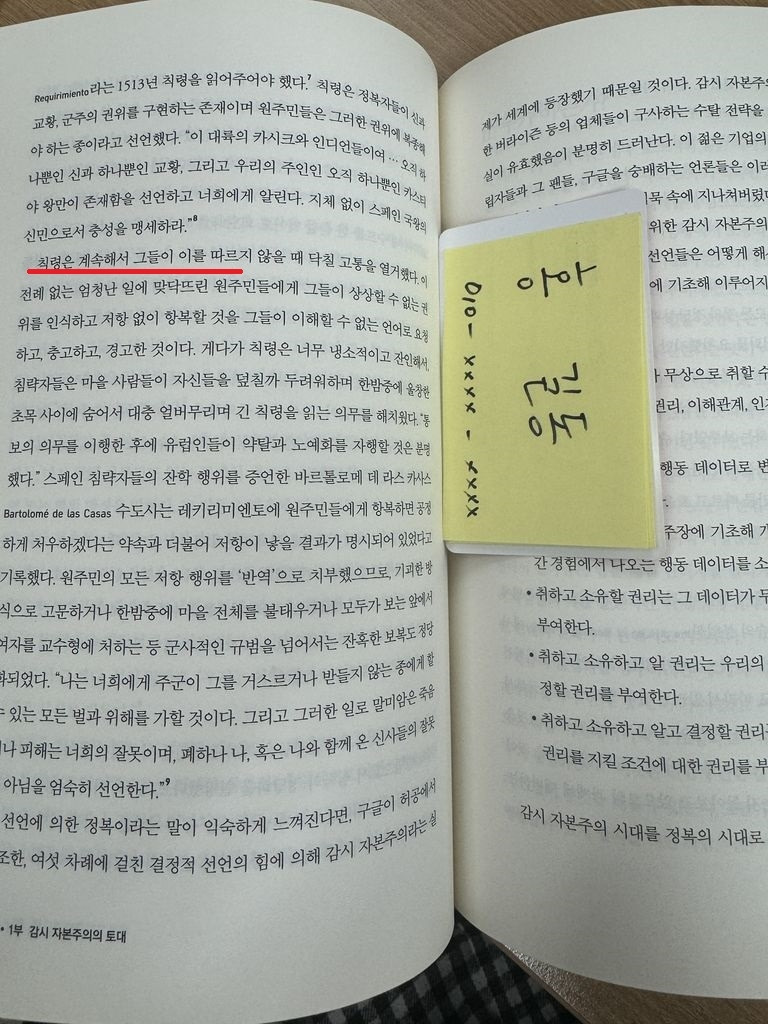 Requirimiento라는 1513년 칙령을 읽어주어야 했다.7 칙령은 정복자들이 신과
교황, 군주의 권위를 구현하는 존재이며 원주민들은 그러한 권위에 복종해
야 하는 종이라고 선언했다. “이 대륙의 카시크와 인디언들이여 … 오직 하
나뿐인 신과 하나뿐인 교황, 그리고 우리의 주인인 오직 하나뿐인 카스티
야 왕만이 존재함을 선언하고 너희에게 알린다. 지체 없이 스페인 국왕의
신민으로서 충성을 맹세하라.”8
칙령은 계속해서 그들이 이를 따르지 않을 때 닥칠 고통을 열거했다. 이
전례 없는 엄청난 일에 맞닥뜨린 원주민들에게 그들이 상상할 수 없는 권
위를 인식하고 저항 없이 항복할 것을 그들이 이해할 수 없는 언어로 요청
하고, 충고하고, 경고한 것이다. 게다가 칙령은 너무 냉소적이고 잔인해서,
침략자들은 마을 사람들이 자신들을 덮칠까 두려워하며 한밤중에 울창한
초목 사이에 숨어서 대충 얼버무리며 긴 칙령을 읽는 의무를 해치웠다. “통
보의 의무를 이행한 후에 유럽인들이 약탈과 노예화를 자행할 것은 분명
했다.” 스페인 침략자들의 잔학 행위를 증언한 바르톨로메 데 라스 카사스
Bartolomé de las Casas 수도사는 레키리미엔토에 원주민들에게 항복하면 공정
하게 처우하겠다는 약속과 더불어 저항이 낳을 결과가 명시되어 있었다고
기록했다. 원주민의 모든 저항 행위를 ‘반역’으로 치부했으므로, 기괴한 방
식으로 고문하거나 한밤중에 마을 전체를 불태우거나 모두가 보는 앞에서
여자를 교수형에 처하는 등 군사적인 규범을 넘어서는 잔혹한 보복도 정당
화되었다. “나는 너희에게 주군이 그를 거스르거나 받들지 않는 종에게 할
수 있는 모든 벌과 위해를 가할 것이다. 그리고 그러한 일로 말미암은 죽음
나 피해는 너희의 잘못이며, 폐하나 나, 혹은 나와 함께 온 신사들의 잘못
아님을 엄숙히 선언한다.”9
선언에 의한 정복이라는 말이 익숙하게 느껴진다면, 구글이 허공에서
조한, 여섯 차례에 걸친 결정적 선언의 힘에 의해 감시 자본주의라는 실
• 1부 감시 자본주의의 토대
홍 길동
010 - xxxx - xxxx
제가 세계에 등장했기 때문일 것이다. 감시 자본주
한 버라이즌 등의 업체들이 구사하는 수탈 전략을
실이 유효했음이 분명히 드러난다. 이 젊은 기업의
립자들과 그 팬들, 구글을 숭배하는 언론들은 이러
묵 속에 지나쳐버렸다
위한 감시 자본주의
선언들은 어떻게 해서
에 기초해 이루어지
무상으로 취할 수
권리, 이해관계, 인지
행동 데이터로 변
주장에 기초해 개
간 경험에서 나오는 행동 데이터를 소
• 취하고 소유할 권리는 그 데이터가 무
부여한다.
• 취하고 소유하고 알 권리는 우리의
정할 권리를 부여한다.
• 취하고 소유하고 알고 결정할 권리
권리를 지킬 조건에 대한 권리를 부
감시 자본주의 시대를 정복의 시대로